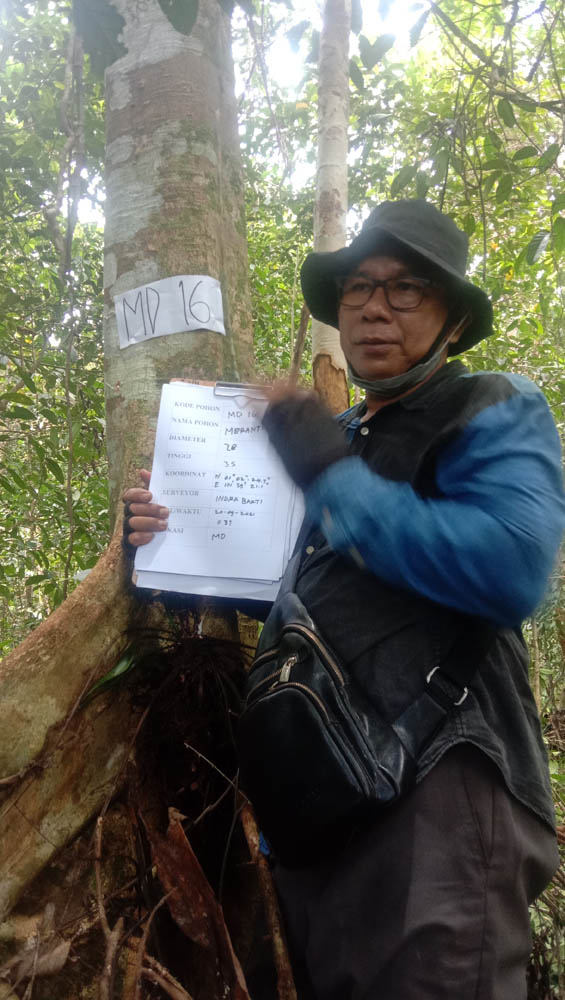 MD 16
KODE POHON MD 16
NAMA POHON MERANTI
DIAMETER 28
TINGGI 35
KOORDINAT N 01°
E
SURVEYOR INDRA BAKTI
/WAKTU 20-09-2021
KASI MD